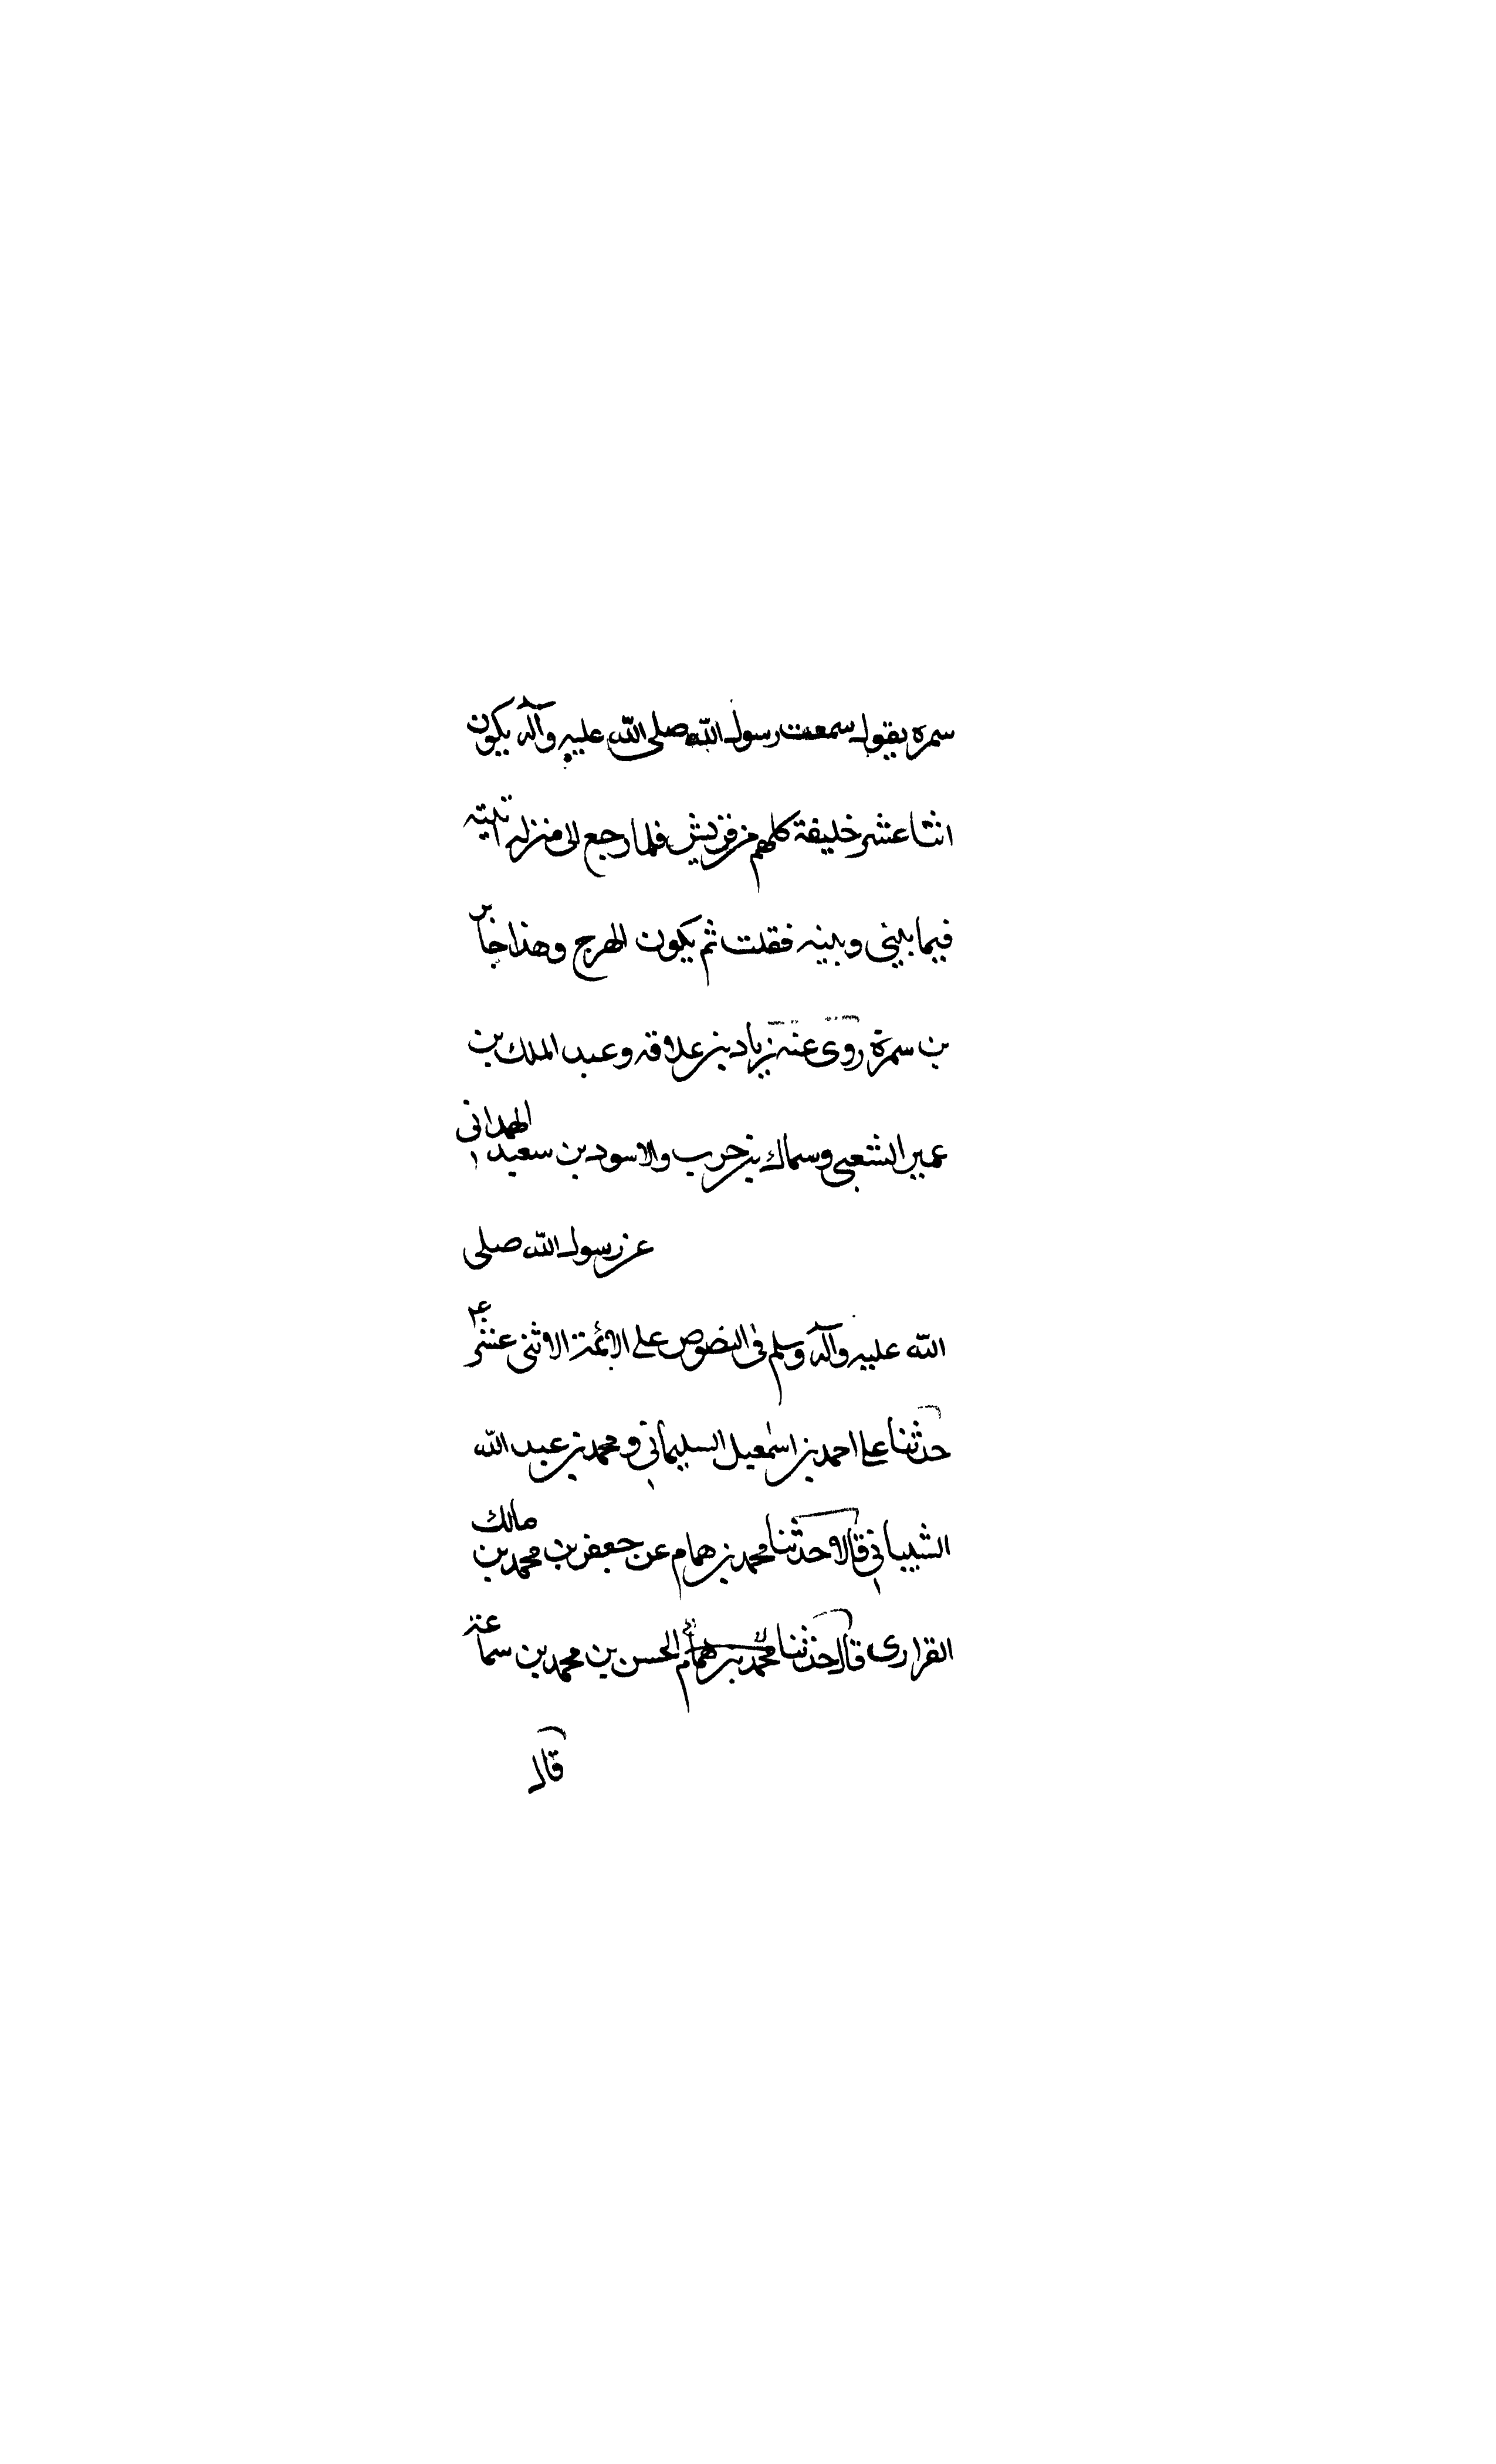 سمره يقول سمعت رسول الله صلى الله عليه وآله يكون
اثنا عشر خليفة كلهم من قريش فلما رجع الى منزله اتيته
فيما بيني وبينه فقلت ثم يكون الهرج وهذا جابر
بن سمرة روى عنه زياد بن علاقه وعبد الملك بن
عمير الشعبي وسماك بن حرب والاسود بن سعيد الهمداني
عن رسول الله صلى
الله عليه وآله وسلم في النصوص على الائمة الاثنى عشر ع
حدثنا على احمد بن اسمعيل السليماني ومحمد بن عبد الله
الشيباني قالا حدثنا محمد بن همام عن جعفر بن محمد بن مالك
القراري قال حدثنا محمد بن همام الحسن بن محمد بن سماعة
قال